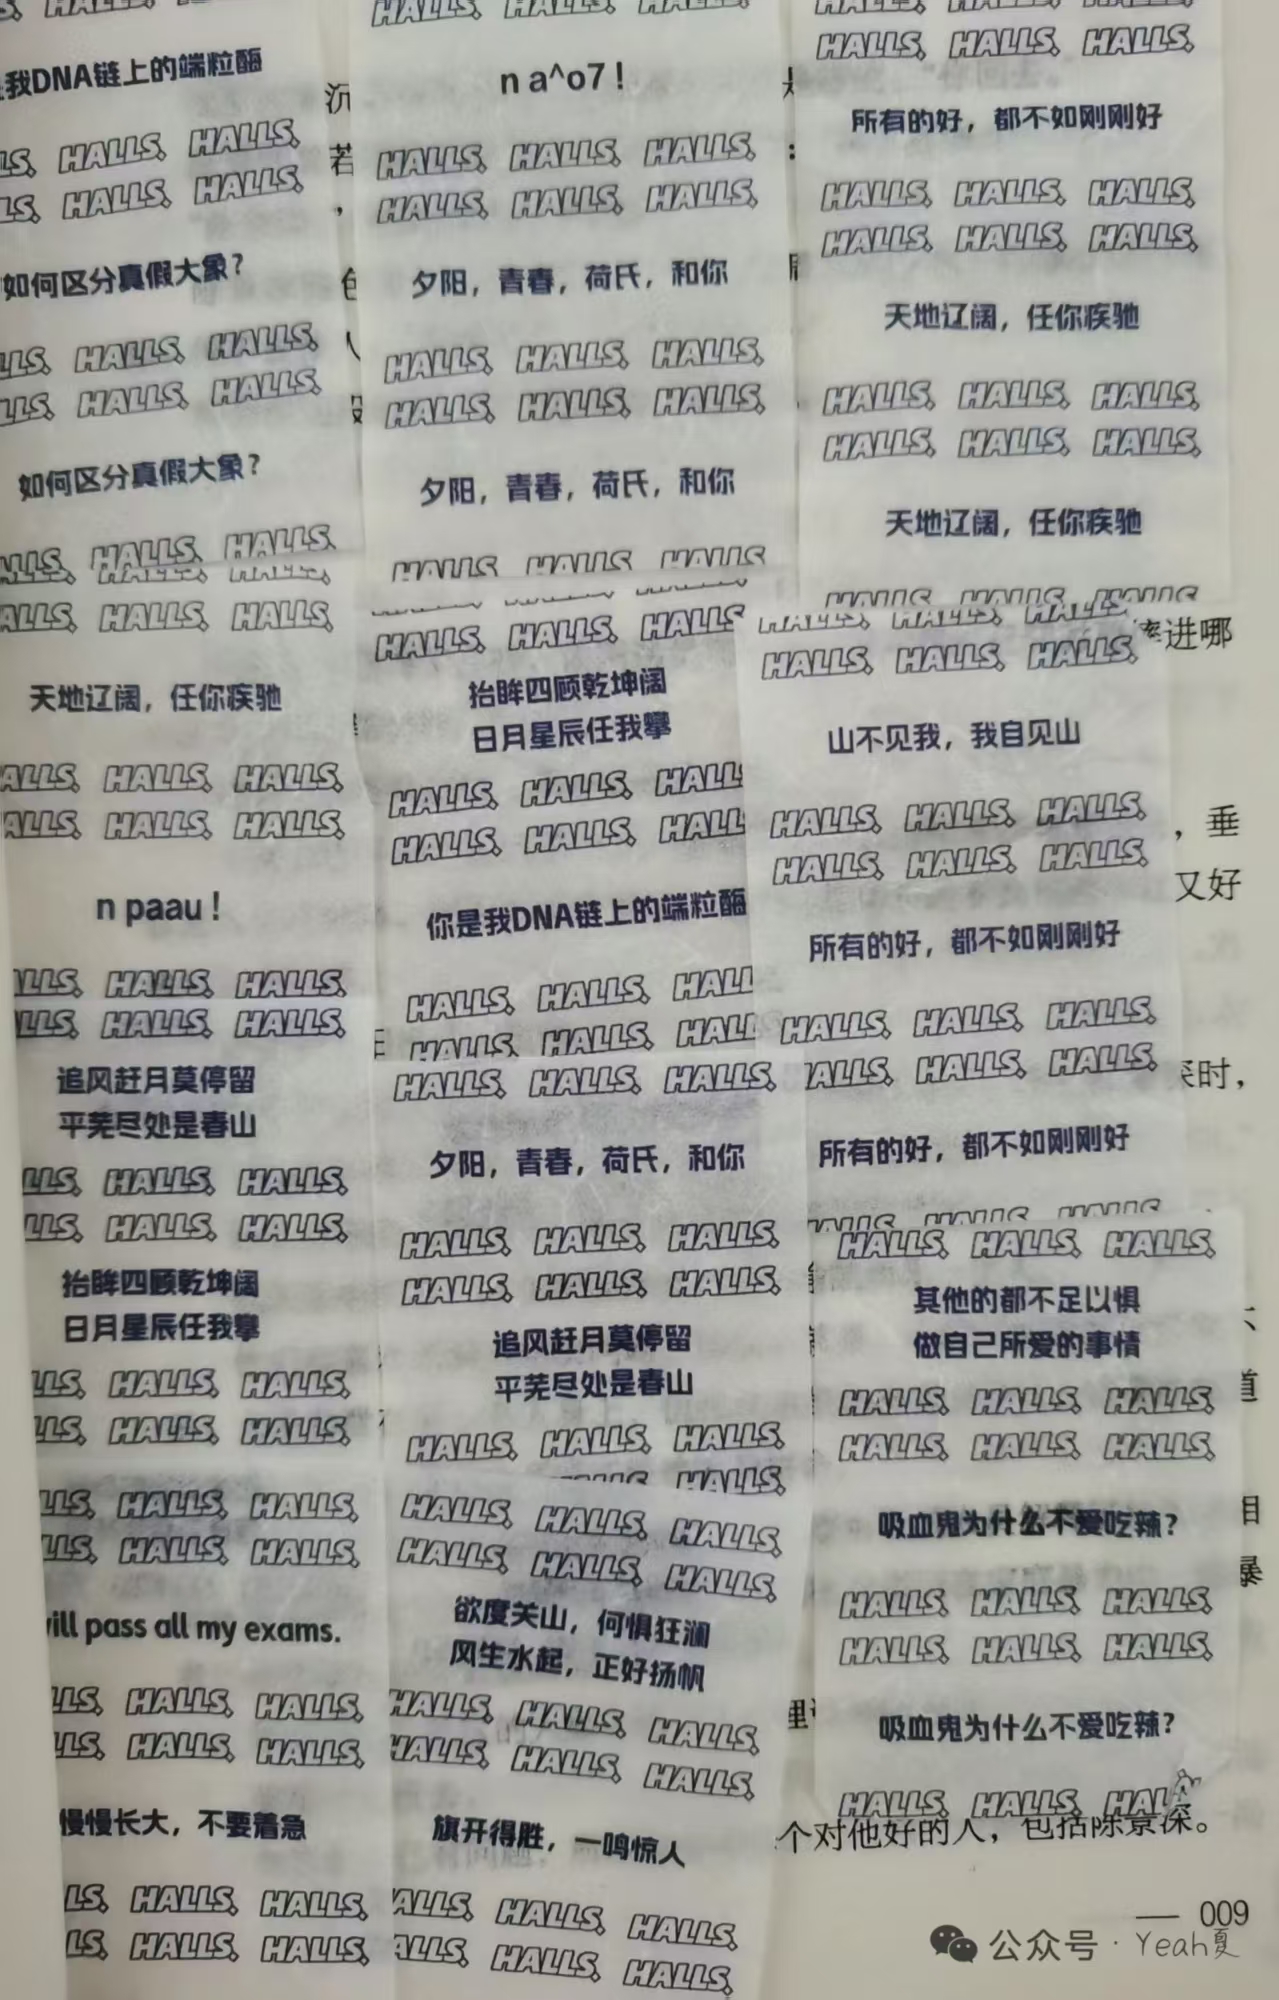 HALLS HALLS HALLS
是我DNA链上的端粒酶
HALLS HALLS
HALLS HALLS
如何区分真假大象?
HALLS HALLS
HALLS HALLS
如何区分真假大象?
HALLS HALLS
HALLS HALLS
天地辽阔，任你疾驰
HALLS HALLS
HALLS HALLS
n paau !
HALLS HALLS
HALLS HALLS
追风赶月莫停留
平芜尽处是春山
HALLS HALLS
HALLS HALLS
抬眸四顾乾坤阔
日月星辰任我攀
HALLS HALLS
HALLS HALLS
HALLS HALLS
HALLS HALLS
will pass all my exams.
HALLS HALLS
HALLS HALLS
慢慢长大，不要着急
HALLS HALLS
HALLS HALLS
HALLS HALLS HALLS
n a^o7 !
HALLS HALLS HALLS
HALLS HALLS HALLS
夕阳，青春，荷氏，和你
HALLS HALLS HALLS
HALLS HALLS HALLS
夕阳，青春，荷氏，和你
HALLS HALLS HALLS
HALLS HALLS HALLS
抬眸四顾乾坤阔
日月星辰任我攀
HALLS HALLS HALLS
HALLS HALLS HALLS
你是我DNA链上的端粒酶
HALLS HALLS HALLS
HALLS HALLS HALLS
HALLS HALLS HALLS
夕阳，青春，荷氏，和你
HALLS HALLS HALLS
HALLS HALLS HALLS
追风赶月莫停留
平芜尽处是春山
HALLS HALLS HALLS
HALLS
HALLS HALLS HALLS
HALLS HALLS HALLS
欲度关山，何惧狂澜
风生水起，正好扬帆
HALLS HALLS HALLS
HALLS HALLS HALLS
旗开得胜，一鸣惊人
HALLS HALLS HALLS
HALLS HALLS HALLS
HALLS HALLS HALLS
HALLS HALLS HALLS
所有的好，都不如刚刚好
HALLS HALLS HALLS
HALLS HALLS HALLS
天地辽阔，任你疾驰
HALLS HALLS HALLS
HALLS HALLS HALLS
天地辽阔，任你疾驰
HALLS HALLS HALLS
HALLS HALLS HALLS
HALLS HALLS HALLS
山不见我，我自见山
HALLS HALLS HALLS
HALLS HALLS HALLS
所有的好，都不如刚刚好
HALLS HALLS HALLS
HALLS HALLS HALLS
所有的好，都不如刚刚好
HALLS HALLS HALLS
HALLS HALLS HALLS
其他的都不足以惧
做自己所爱的事情
HALLS HALLS HALLS
HALLS HALLS HALLS
吸血鬼为什么不爱吃辣?
HALLS HALLS HALLS
HALLS HALLS HALLS
吸血鬼为什么不爱吃辣?
HALLS HALLS HALLS
沉
若
，
进哪
，垂
又好
时，
道
相
暴
理
个对他好的人，包括陈景深。
— 009
公众号·Yeah夏